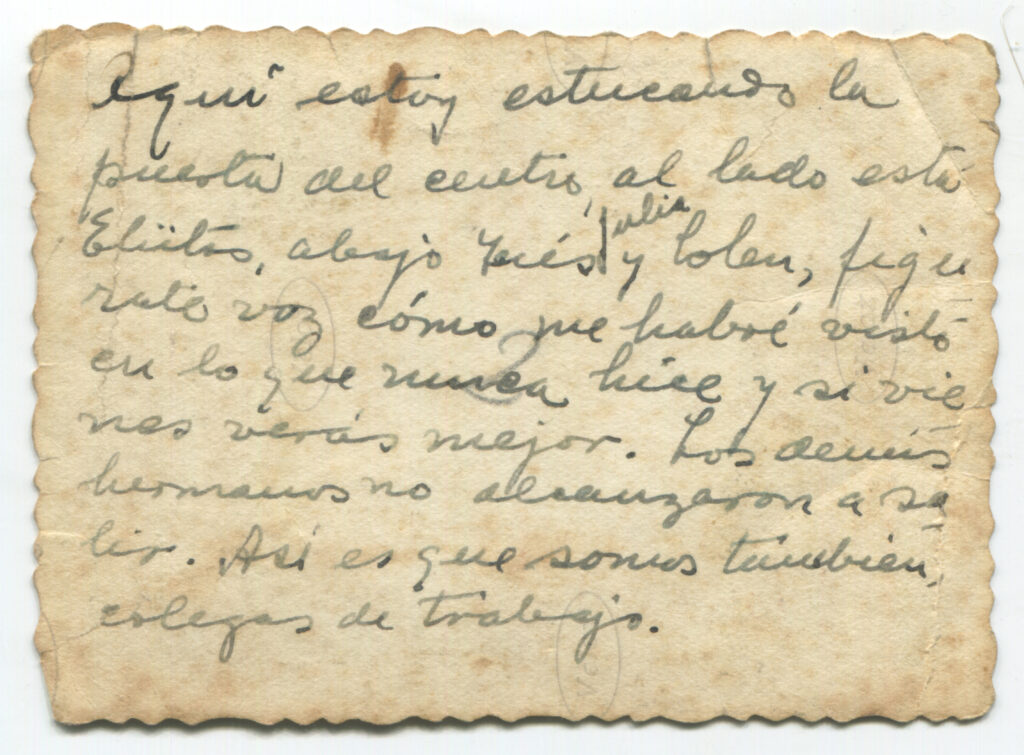 Aquí estoy estucando la
puerta del centro, al lado está
Eliítas, abajo Inés, Julia y Lolen, figu
rate voz cómo me habré visto
en lo que nunca hice y si vie
nes verás mejor. Los demás
hermanos no alcanzaron a sa
lir. Así es que somos también,
colegas de trabajo.